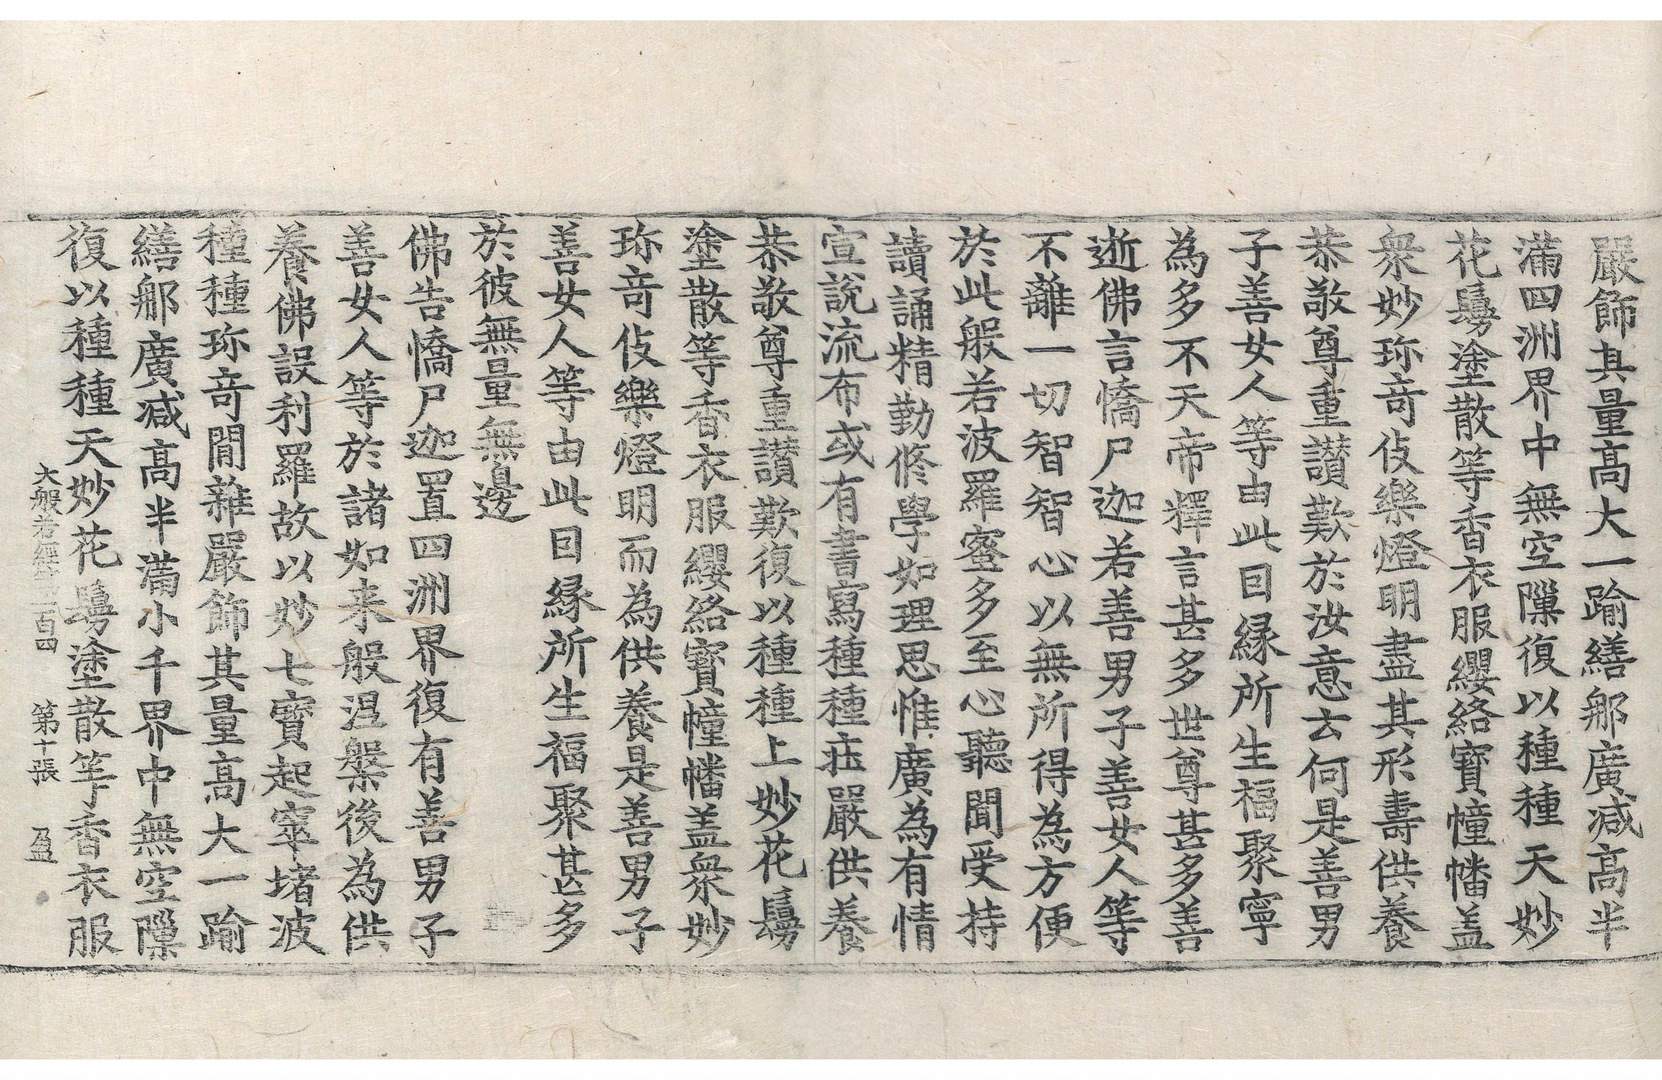 嚴飾其量高大一踰繕那廣减高半
滿四洲界中無空隟復以種種天妙
花鬘塗散等香衣服纓絡寶幢幡盖
衆妙珎竒伎樂燈明盡其形壽供養
恭敬尊重讃歎於汝意云何是善男
子善女人等由此因縁所生福聚寧
為多不天帝釋言甚多世尊甚多善
逝佛言憍尸迦若善男子善女人等
不離一切智智心以無所得為方便
於此般若波羅蜜多至心聽聞受持
讀誦精勤修學如理思惟廣為有情
宣說流布或有書寫種種莊嚴供養
恭敬尊重讃歎復以種種上妙花鬘
塗散等香衣服纓絡寶幢幡盖衆妙
珎竒伎樂燈明而為供養是善男子
善女人等由此因縁所生福聚甚多
於彼無量無邊
佛告憍尸迦置四洲界復有善男子
善女人等於諸如来般涅槃後為供
養佛設利羅故以妙七寶起窣堵波
種種珎竒間雜嚴飾其量高大一踰
繕那廣减高半滿小千界中無空隟
復以種種天妙花鬘塗散等香衣服
大般若經第一百四 第十張 盈